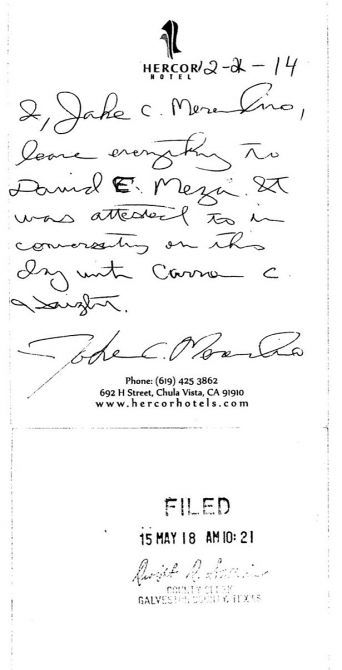 HERCOR
HOTEL
12-2-14
I, Jake C. Merendino,
leave everything to
David E. Meza. It
was attested to in
conversation on this
day with C.
Jake C. Merendino
Phone: (619) 425 3862
692 H Street, Chula Vista, CA 91910
www.hercorhotels.com
FILED
15 MAY 18 AM 10: 21
COUNTY CLERK
GALVESTON COUNTY, TEXAS